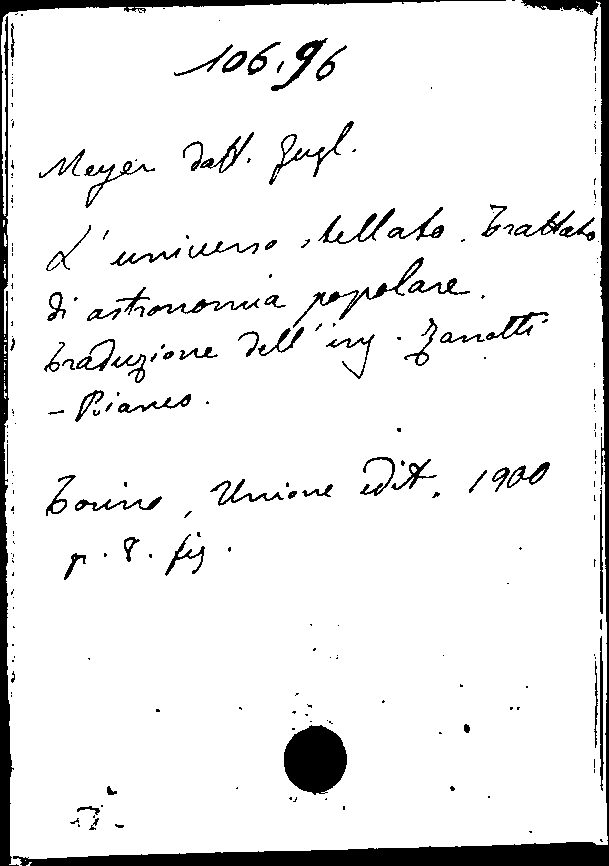 106.96
Meyer dott. Gugl.
L'universo stellato. Trattato
di astronomia popolare.
Traduzione dell'ing. Zanotti
- Bianco.
Torino, Unione edit. 1900
p. 8. fig.